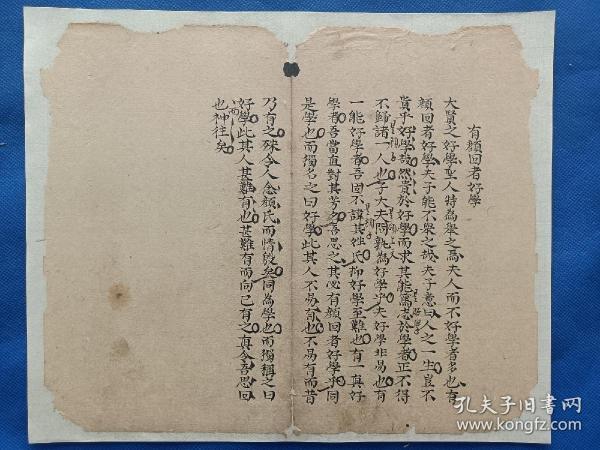 有顏回者好學
大賢之好學聖人特為舉之焉夫人而不好學者多也有
顏回者好學夫子能不舉之哉夫子意曰人之一生豈不
貴乎好學哉然貴於好學而求其能篤志於學者正不得
不歸諸一人也子大夫問孰為好學乎夫好學非易也有
一能好學者吾固不諱其姓氏抑好學至難也有一真好
學者吾當直對其芳名吾思之其必有顏回者好學乎同
是學也而獨名之曰好學此其人不易有也不易有而昔
乃有之殊令人念顏氏而情殷矣同為學也而獨稱之曰
好學此其人甚難有也甚難有而向已有之真令吾思回
也而神往矣
孔夫子旧书网
www.kongfz.com